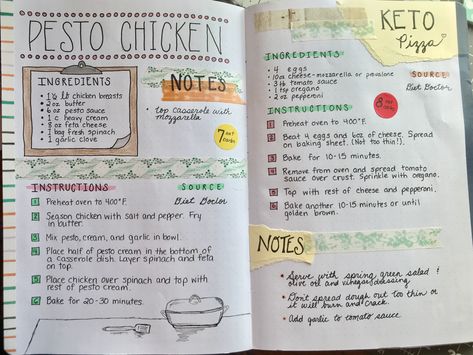 PESTO CHICKEN
INGREDIENTS
• 1½ lb chicken breasts
• 2oz butter
• 6oz pesto sauce
• 1 c heavy cream
• 8oz feta cheese
• 1 bag fresh spinach
• 1 garlic clove
NOTES
• top casserole with
mozzarella
7 net
carbs
INSTRUCTIONS
SOURCE
Diet Doctor
1 Preheat oven to 400°F.
2 Season chicken with salt and pepper. Fry
in butter.
3 Mix pesto, cream, and garlic in bowl.
4 Place half of pesto cream in the bottom of
a casserole dish. Layer spinach and feta
on top.
5 Place chicken over spinach and top with
rest of pesto cream.
6 Bake for 20-30 minutes.
KETO
Pizza
INGREDIENTS
• 4 eggs
• 10oz cheese-mozzarella or provolone
• 3 tb tomato sauce
• 1 tsp oregano
• 2oz pepperoni
SOURCE
Diet Doctor
8
INSTRUCTIONS
1 Preheat oven to 400°F.
2 Beat 4 eggs and 6oz of cheese. Spread
on baking sheet. (Not too thin!).
3 Bake for 10-15 minutes.
4 Remove from oven and spread tomato
sauce over crust. Sprinkle with oregano.
5 Top with rest of cheese and pepperoni.
6 Bake another 10-15 minutes or until
golden brown.
NOTES
• Serve with spring green salad &
olive oil and vinegar dressing
• Don't spread dough out too thin or
it will burn and crack.
• Add garlic to tomato sauce